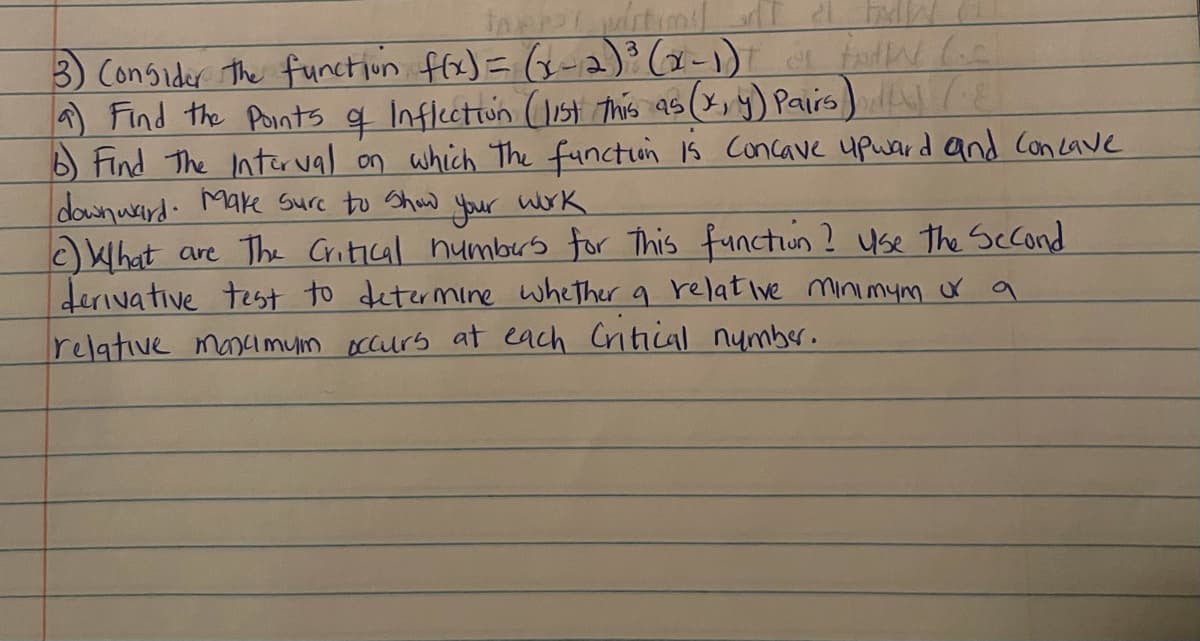 3) Consider the function f(x) = (x-2)³ (x-1)
a) Find the Points of Inflection (list this as (x, y) Pairs)
b) Find The Interval on which The function is Concave upward and Concave
downward. Make sure to show your work
c) What are The Critical numbers for This function? Use the Second
derivative test to determine whether a relative minimum or a
relative maximum occurs at each Critical number.